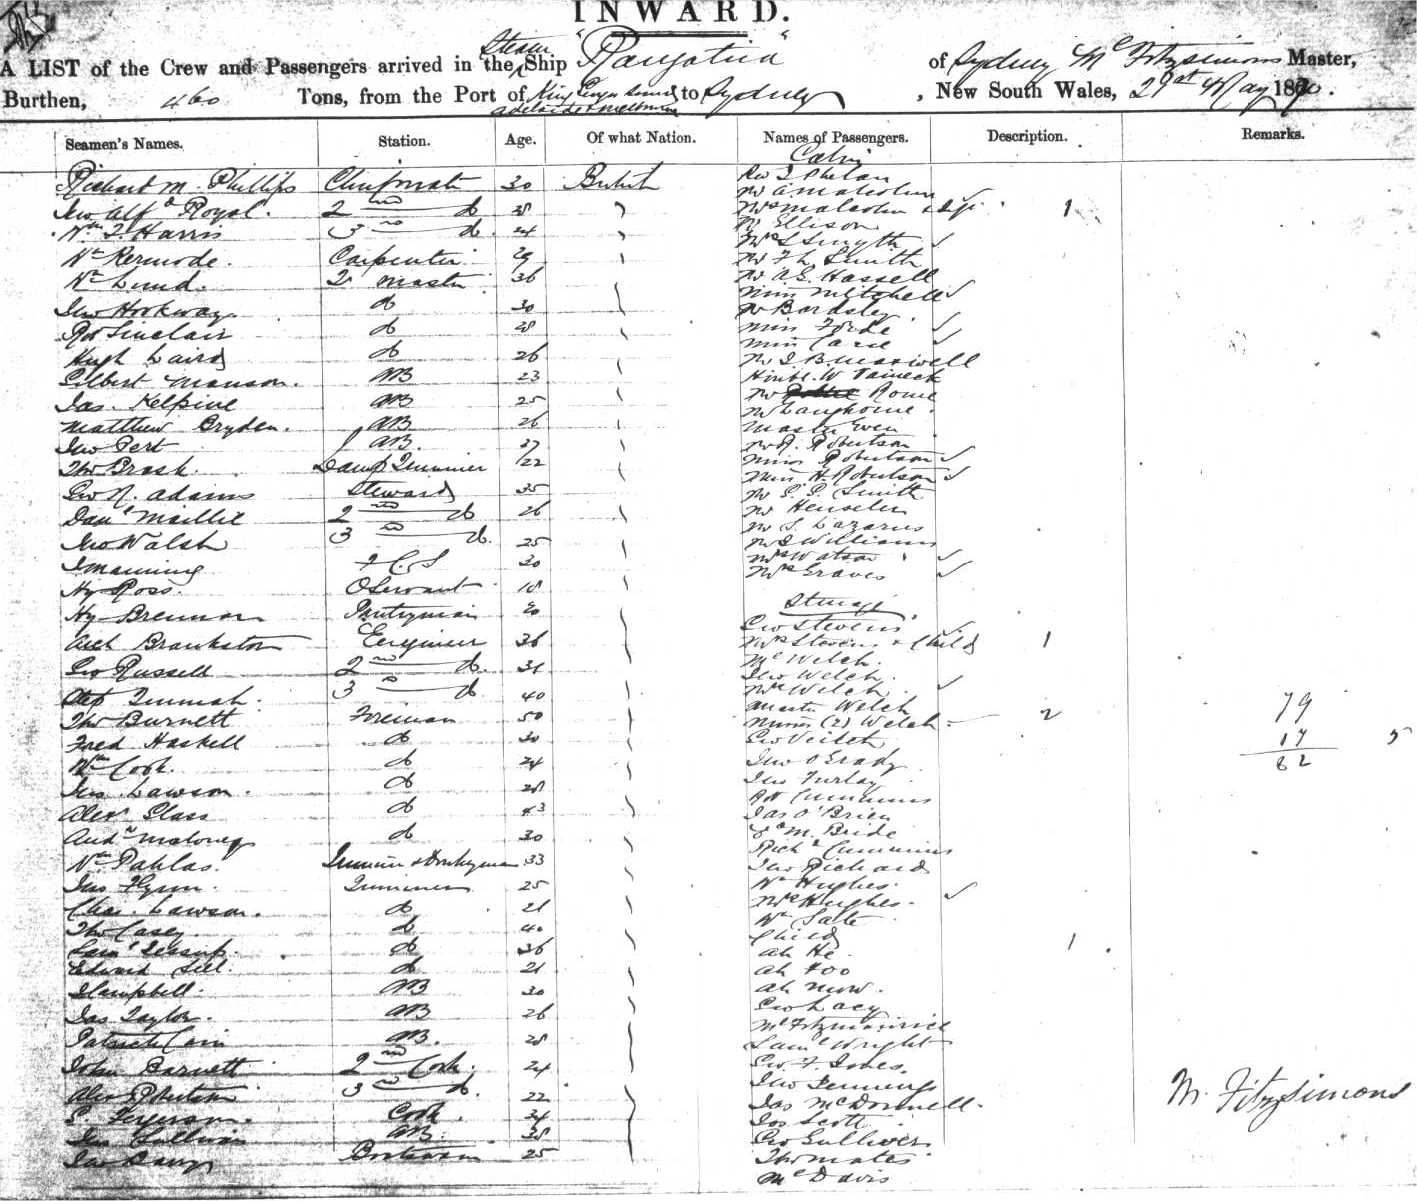 INWARD.
A LIST of the Crew and Passengers arrived in the Steam Ship "Rangatira" of Sydney Mc Fitzsimons Master,
Burthen, 460 Tons, from the Port of King Georges Sound Adelaide & Melbourne to Sydney, New South Wales, 29th May 1870.
Seamen's Names. Station. Age. Of what Nation. Names of Passengers. Description. Remarks.
Richard M. Phillips Chief mate 30 British
Jno Alfd Royal. 2nd do 28
Wm T. Harris 3rd do. 24
Wm Kermode. Carpenter 29
Wm Lund. Qr master 36
Jno Hookway do 30
Robt Sinclair do 28
Hugh Laird do 26
Gilbert Manson. AB 23
Jas. Kelpine AB 25
Matthew Bryden. AB 26
Jno Pert AB. 37
Thos Brash. Lamp Trimmer 22
Geo N. Adams Steward 35
Danl Maillie 2nd do 26
Jno Walsh 3rd do. 25
J Manning F.C.S 30
Hy Ross. O Servant 18
Hy Brennan Pantryman 20
Arch Brankston Engineer 36
Geo Russell 2nd do. 31
3rd do. 40
Thos Burnett Fireman 50
Fred Haskell do 30
Wm Cook. do 24
Jno. Lawson. do 28
Alexr Glass do 43
Andw Maloney do 30
Wm Pahlas. Trimmer & Donkeyman 33
Jno Flynn. Trimmer 25
Chas. Lawson. do 21
Thos Casey. do 40
Saml Jessup. do 36
Edward Sell. do 21
J Campbell. AB 30
Jas Taylor. AB 26
Patrick Cain AB. 28
John Barnett 2nd Cook. 24
Alex Robertson 3rd do. 22
Cook. 34
Jno Sullivan AB. 38
Boatswain 25
Cabin
Rev J Phelan
Mr A Malcolm
Mrs Malcolm & Inft. 1
Mr Ellison
Mrs S Smyth
Mr F L Smith
Mr A.E. Hassell
Miss Mitchell
Mr Bardsley.
Miss Forde
Miss Carse
Mr J. B. Maxwell
Mr Rome
Mr Langhorne.
Master Wen
Mr R. Robertson
Miss Robertson
Miss H. Robertson
Mr G. P. Smith
Mr Henselin
Mr S. Lazarus
Mr J Williams
Mrs Watson
Mrs Graves
Steerage
Geo Stevens
Mrs Stevens & Child 1
Mc Welch.
Jno Welch.
Mrs Welch
Master Welch
Misses (2) Welch 2
Geo Veitch
Jno O'Grady
Jno Furlay
Robt Cummins
Jas O'Brien
Mc Bride
Richd Cummins
Jno Richard
Wm Hughes.
Mrs Hughes.
Wm Sate
Child 1
Ah He.
Ah Foo
Ah Mow.
Geo Lacy
Mc Fitzmaurice
Saml Wright
Geo F. Jones.
Jno Jennings
Jas McDonnell.
Jos Scott
Geo Gulliver
Thos Mates
Mc Davis
79
17
82
5
M. Fitzsimons